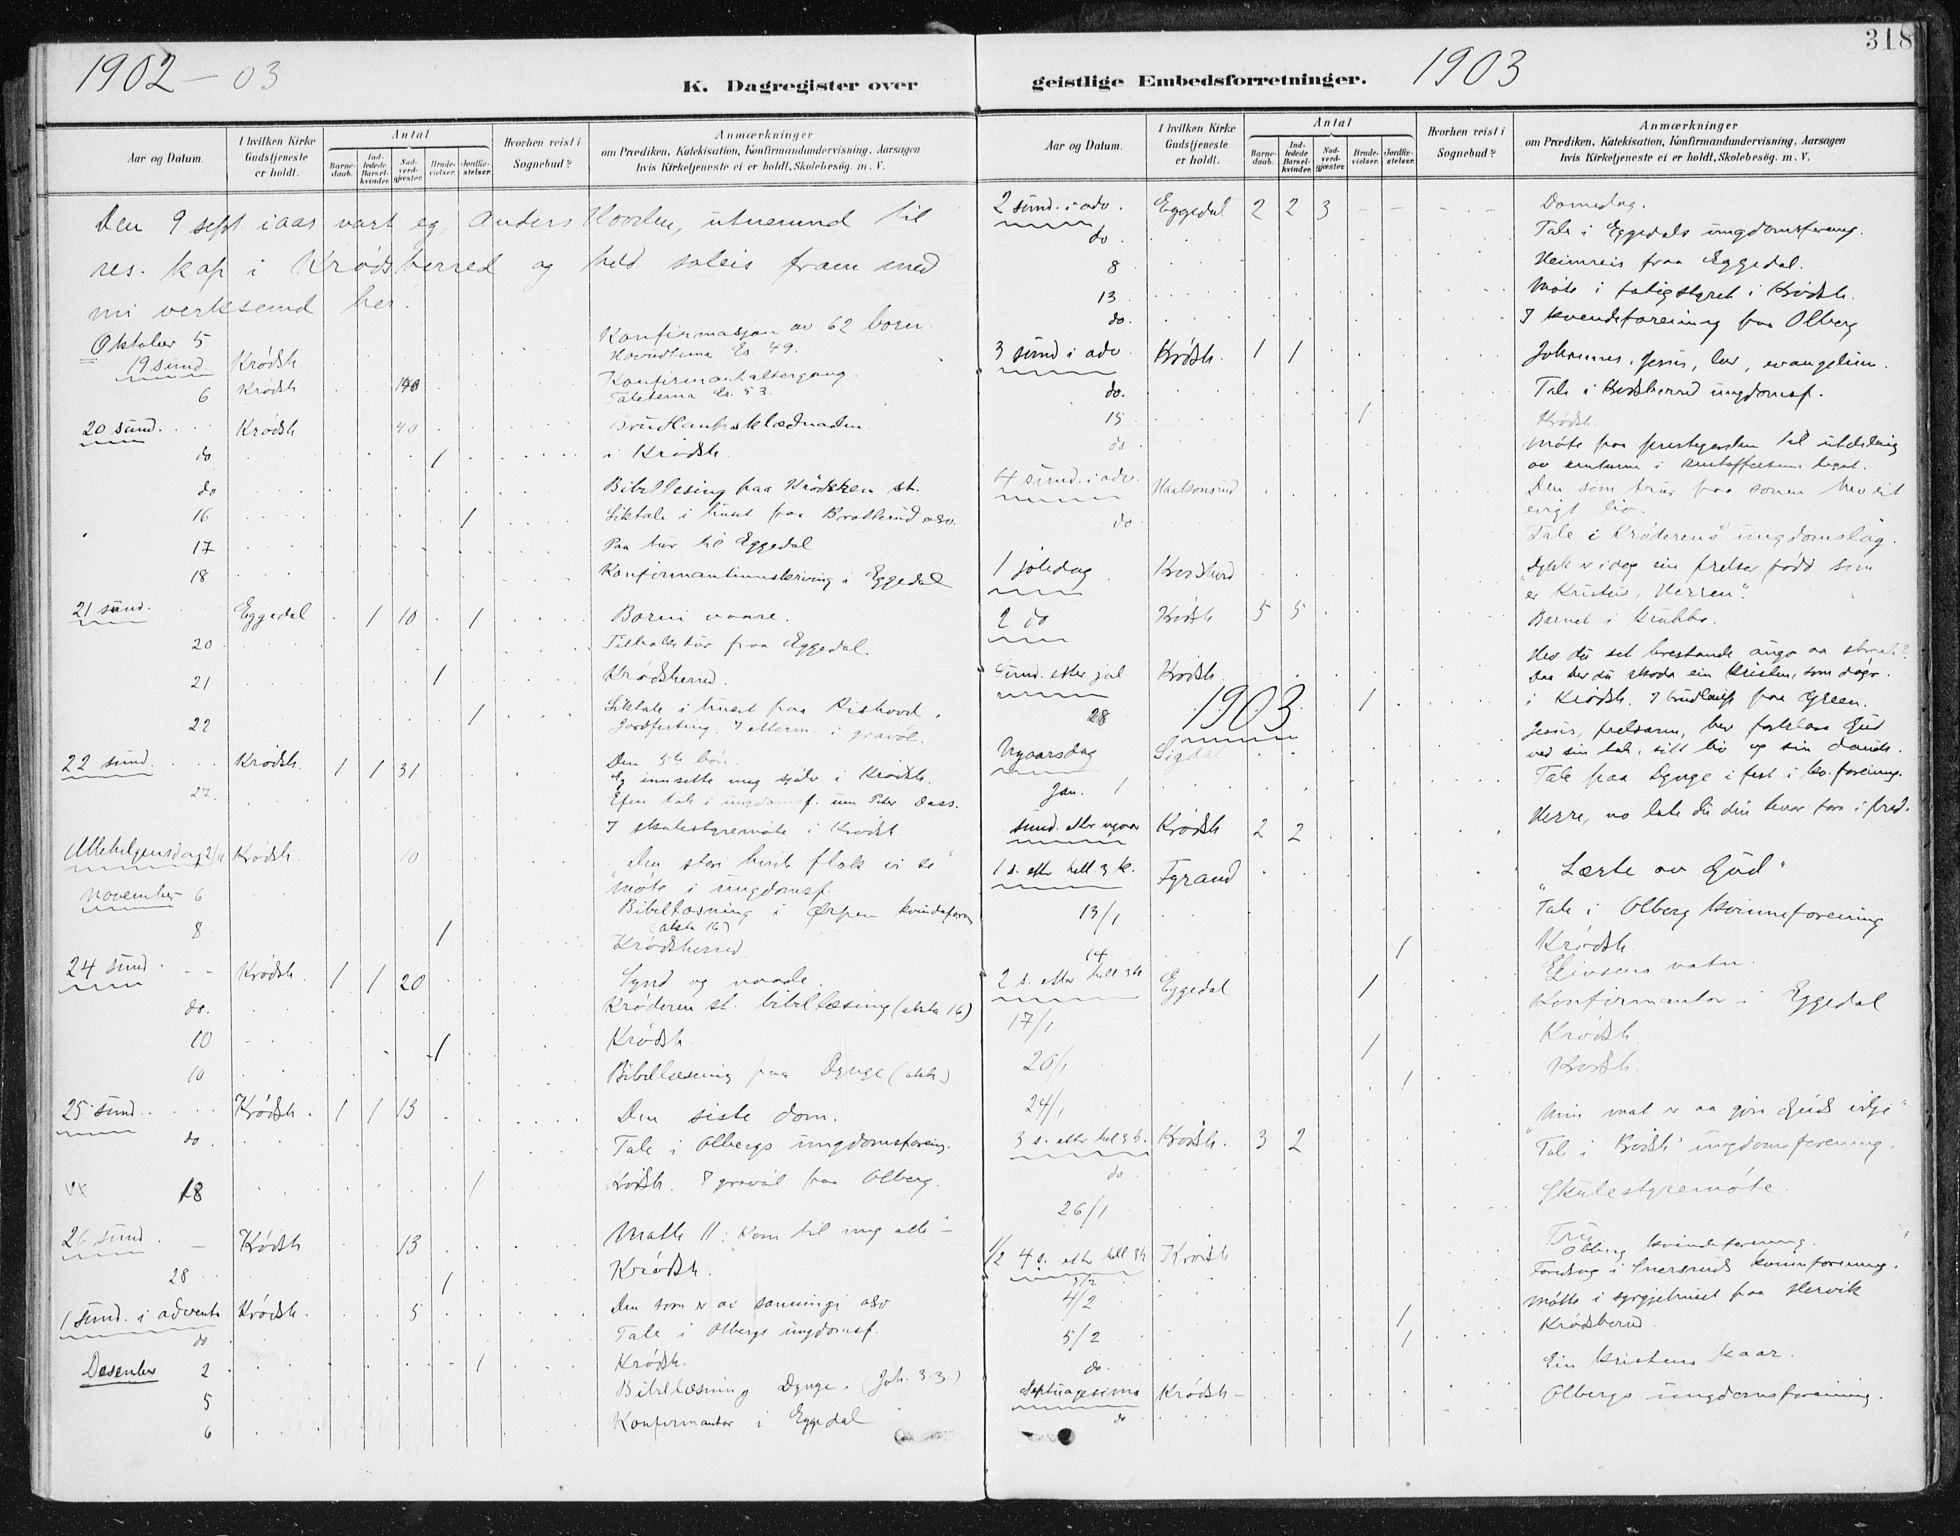 1902 - 03
K. Dagregister over
Aar og Datum.
I hvilken Kirke Gudstjeneste er holdt.
Antal
Barnedaab.
Indledede Barselkvinder.
Nadverdgjester.
Brudevielser.
Jordfæstelser.
Hvorhen reist i Sognebud?
Anmærkninger
om Prædiken, Katekisation, Konfirmandundervisning, Aarsagen
hvis Kirketjeneste ei er holdt, Skolebesøg. m. V.
Den 9 sept. i aar vart eg, Anders Hovden, utnemnd til
res. kap i Krødsherred og held soleis fram med
mi verksemd her.
Oktober 5
19 sund. Krødsh Konfirmasjon av 62 born.
Hovudtema Es. 49.
6 Krødsh Konfirmantaltergang.
Taletema Es. 53.
20 sund. Krødsh 40
do 1 i Krødsh.
do Bibellesing paa Krøderen st.
16 1 Liktale i huset paa
17 Paa tur til Eggedal
18 Konfirmantinnskriving i Eggedal
21 sund. Eggedal 1 10 1 Borni vaare.
20 Tilbaketur fraa Eggedal.
21 1 Krødsherred.
22 1 Liktale i huset paa
Jordfesting. I etterm. i gravøl.
22 sund. Krødsh. 1 1 31 Den 5te bøn.
Eg innsette meg sjølv i Krødsh.
27. Efm. tale i ungdomsf. um Peter Dass.
I skulestyremøte i Krødsh.
Allehelgensdag 2/11 Krødsh. 10 "Den store hvite flok vi se"
November 6 Møte i ungdomsf.
Bibellæsning i Ørpen kvindeforen
8 1 Krødsherred
24 sund. Krødsh 1 1 20 Synd og naade.
do. Krøderen st. bibellæsing (akta 16)
10 1 Krødsh.
10 Bibellæsning paa Dynge
25 sund. Krødsh. 1 1 13 Den siste dom.
do Tale i Olbergs ungdomsforeing.
18 1 Krødsh. I gravøl paa Olberg.
26 sund. Krødsh 13 Matth 11: "Kom til mig alle"
28 1 Krødsh.
1 sund. i advent Krødsh. 5 Den som er av sanningi osv
do Tale i Olbergs ungdomsf.
Desember 2 1 Krødsh.
5 Bibellæsning Dynge. (Joh. 3.3)
6 Konfirmantar i Eggedal
318
geistlige Embedsforretninger.
1903
Aar og Datum.
I hvilken Kirke Gudstjeneste er holdt.
Antal
Barnedaab.
Indledede Barselkvinder.
Nadverdgjester.
Brudevielser.
Jordfæstelser.
Hvorhen reist i Sognebud?
Anmærkninger
om Prædiken, Katekisation, Konfirmandundervisning, Aarsagen
hvis Kirketjeneste ei er holdt, Skolebesøg. m. V.
2 sund. i adv. Eggedal 2 2 3 Domedag.
do Tale i Eggedals ungdomsforeing.
8 Heimreis fraa Eggedal.
13 Møte i fatigstyret i Krødsh.
do. I kvendeforeining paa Olberg
3 sund i adv. Krødsh. 1 1 Johannes, Jesus, lov, evangelium.
do. Tale i Krødsherred ungdomsf.
15 1 Krødsh.
do Møte paa prestegarden til utdeling
4 sund. i adv. Den som trur paa sonen hev eit
evigt liv.
do Tale i Krøderens ungdomslag.
1 joledag "Dykk er i dag ein frelser fødd som
er Kristus, Herren".
2 do Krødsh 5 5 Barnet i krubba.
sund. etter jol Krødsh.
28 1 i Krødsh. I brudlaup paa Green.
1903
Nyaarsdag Sigdal Jesus, frelsaren,
Jan. 1 Tale paa Dynge i fest i kv.foreining.
sund. etter nyaar Krødsh 2 2 Herre, no late du din tenar fara i fred.
1 s. etter hell. 3 k. Fyrand "Lærte av Gud"
13/1 Tale i Olberg kvinneforeining
14 1 Krødsh.
2 s. etter hell 3 k Eggedal 1
17/1 Konfirmantar i Eggedal
20/1 1 Krødsh.
24/1 1 Krødsh.
3 s. etter hel 3 k. Krødsh. 3 2 "Min mat er aa gjøre Guds vilje"
do Tale i Krødsh' ungdomsforening.
26/1 Skulestyremøte.
1/2 4 s. etter hell 3 k Krødsh Tru
3/2 Olberg kvindeforening.
4/2 Foredrag i Snersruds kvinneforening.
1 Møtte i syrgjehuset paa
5/2 1 Krødsherred.
do Ein kristens kaar.
Septuagesima Krødsh
do Olbergs ungdomsforeining.